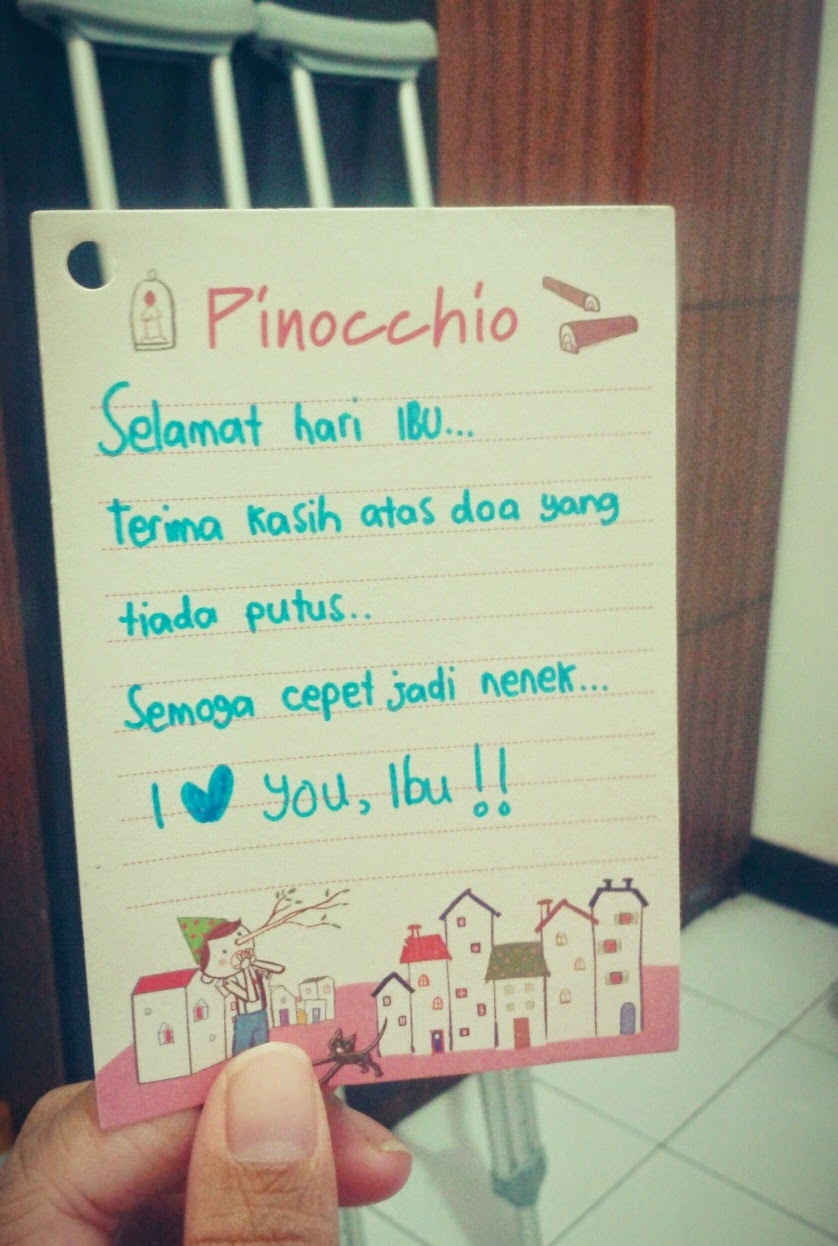 Pinocchio
Selamat hari IBU...
Terima kasih atas doa yang
tiada putus..
Semoga cepet jadi nenek...
I ♥ you, Ibu!!